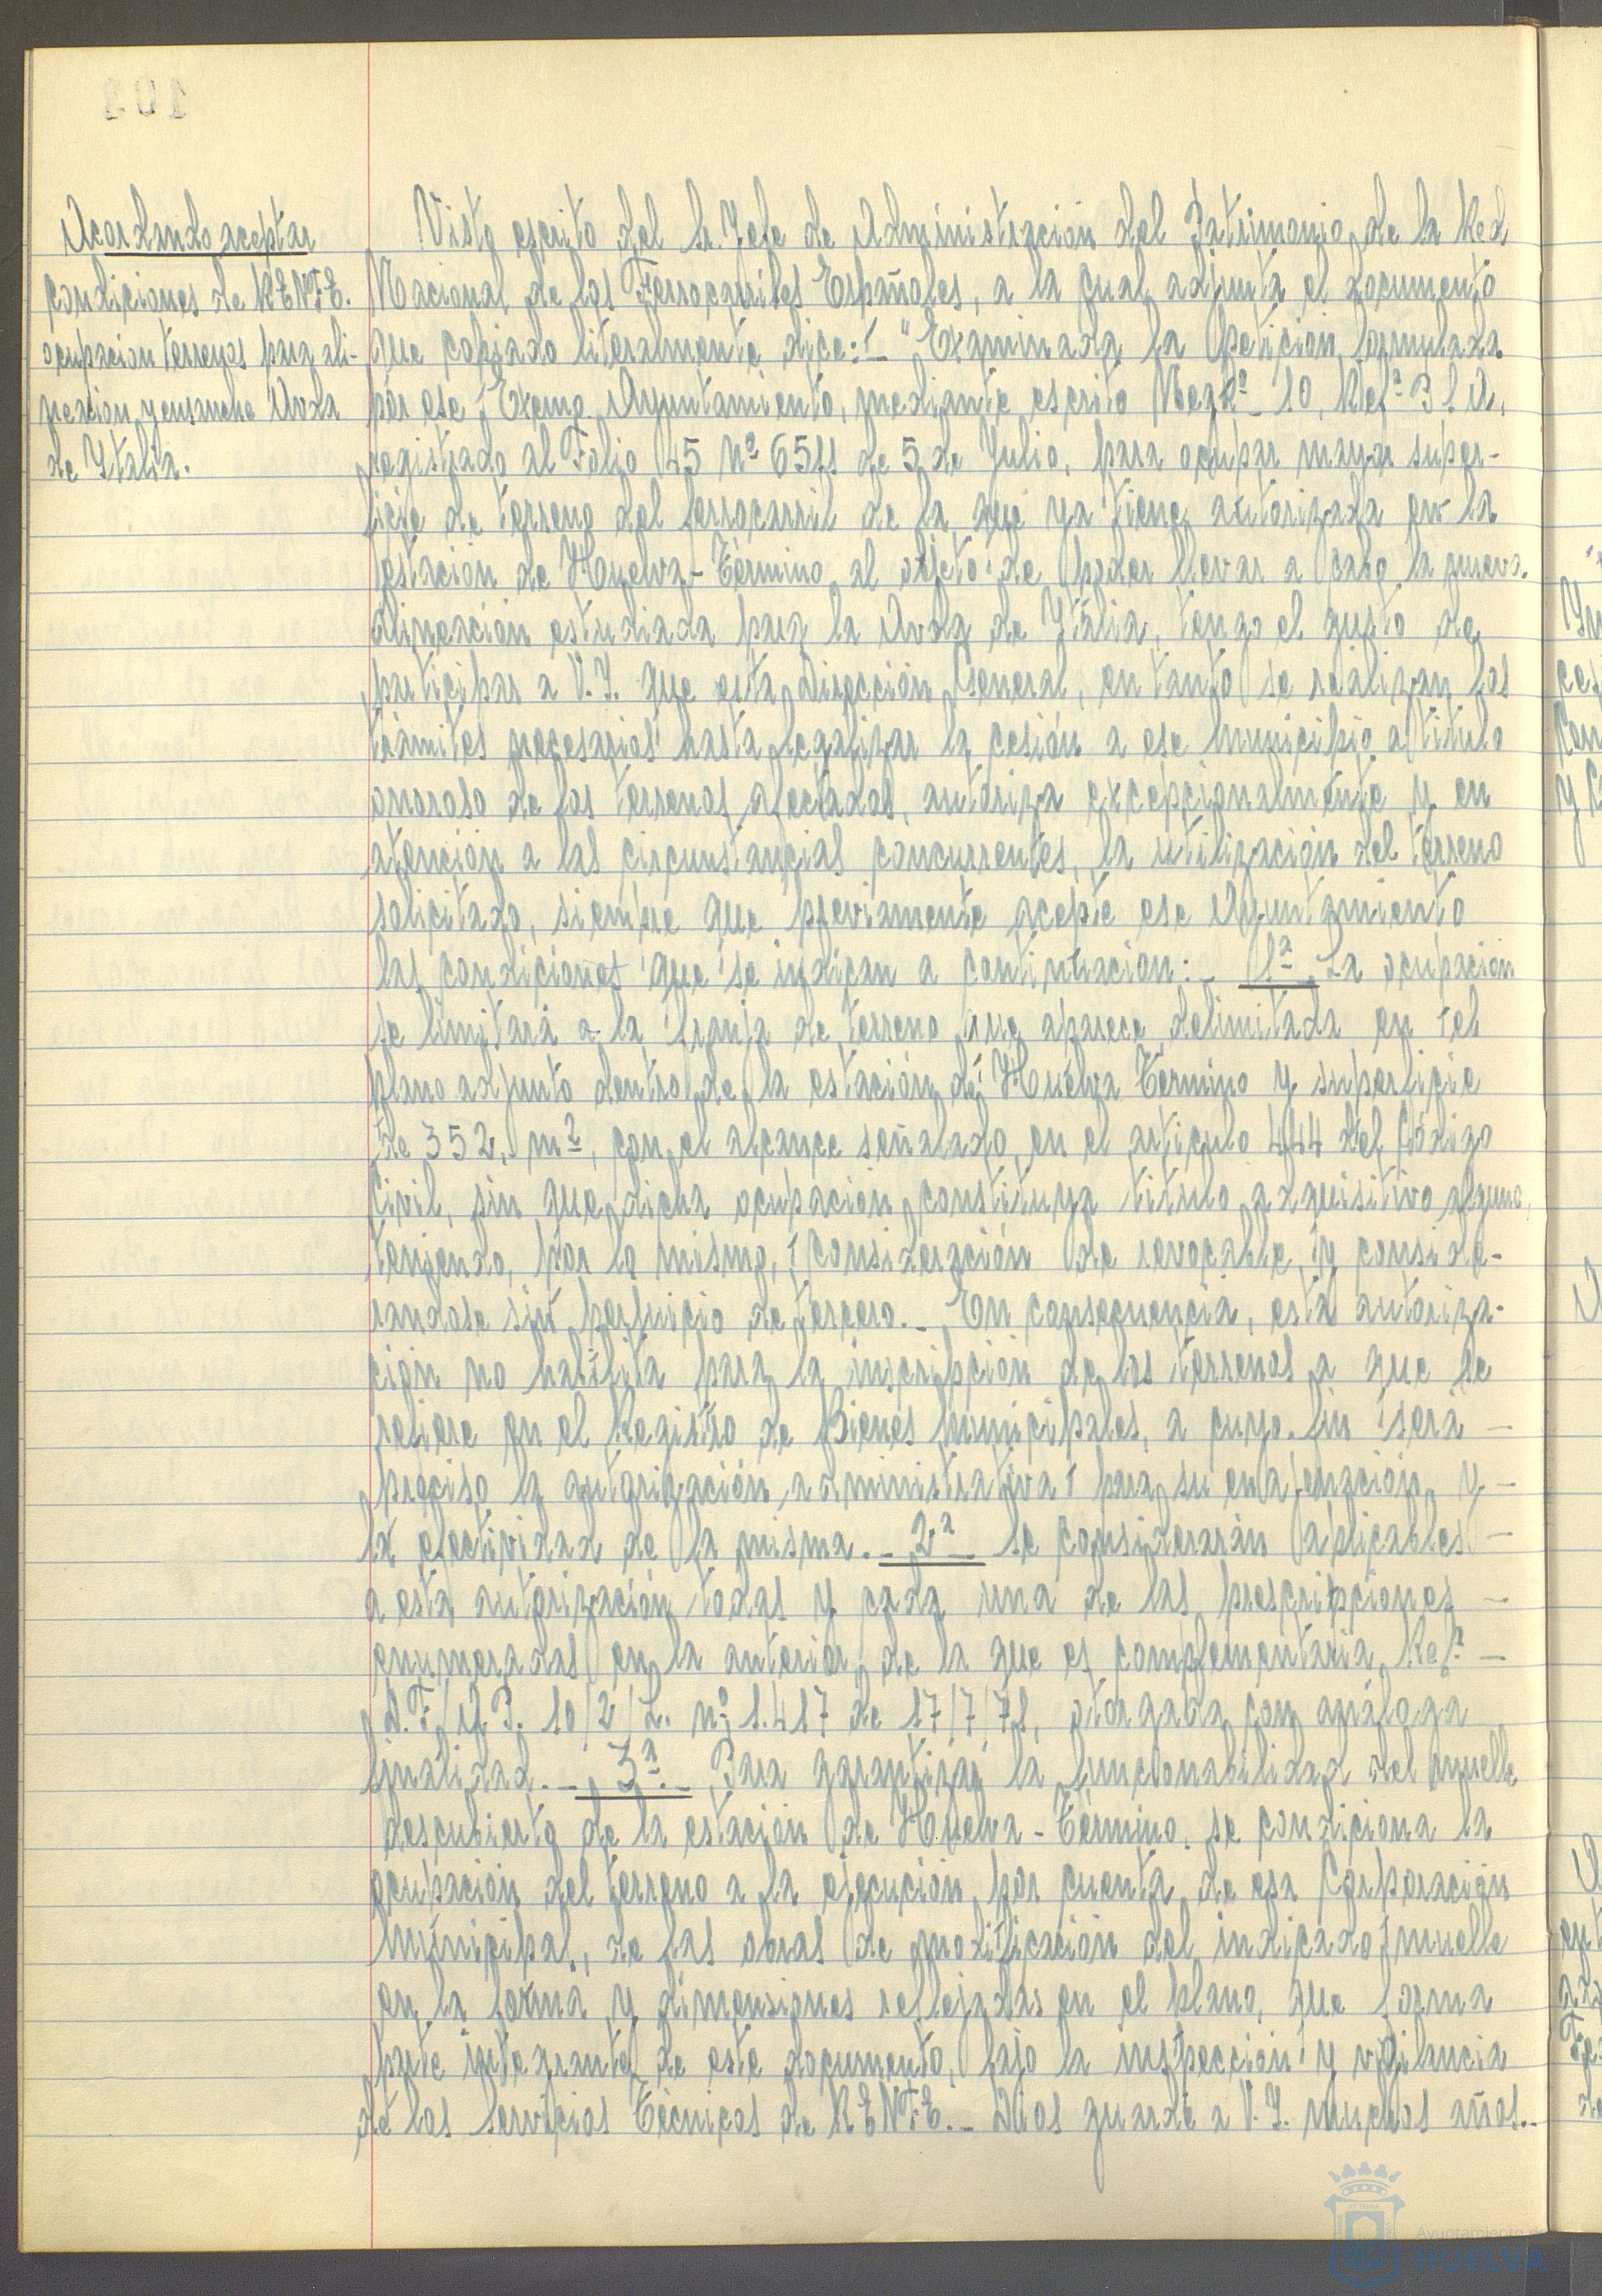 Acordando aceptar
condiciones de RENFE.
ocupacion terrenos para ali-
neacion y ensanche Avda
de Italia.
Visto escrito del Sr. Jefe de Administración del Patrimonio de la Red
Nacional de los Ferrocarriles Españoles, a la cual adjunta el documento
que copiado literalmente dice: "Examinada la petición formulada
por ese Excmo. Ayuntamiento, mediante escrito Negdº 10, Refª
registrado al Folio 45 nº de 5 de Julio, para ocupar mayor super-
ficie de terreno del ferrocarril de la que ya tiene autorizada en la
estación de Huelva-Término al objeto de poder llevar a cabo la nueva
alineación estudiada para la Avda de Italia, tengo el gusto de
participar a V.I. que esta Dirección General, en tanto se realizan los
trámites necesarios hasta legalizar la cesión a ese Municipio a título
oneroso de los terrenos afectados, autoriza excepcionalmente y en
atención a las circunstancias concurrentes, la utilización del terreno
solicitado, siempre que previamente acepte ese Ayuntamiento
las condiciones que se indican a continuacion:_ 1ª_ La ocupación
se limitará a la franja de terreno que aparece delimitada en el
plano adjunto dentro de la estación de Huelva Término y superficie
de 352, m², con el alcance señalado en el artículo 444 del Código
Civil, sin que dicha ocupación constituya título adquisitivo alguno,
teniendo, por lo mismo, consideración de revocable, y conside-
randose sin perjuicio de tercero._ En consecuencia, esta autoriza-
ción no habilita para la inscripción de los terrenos a que se
refiere en el Registro de Bienes Municipales, a cuyo fin será -
preciso la autorización administrativa para su enajenación y -
la efectividad de la misma._ 2ª_ Se considerarán aplicables -
a esta autorización todas y cada una de las prescripciones -
enumeradas en la anterior, de la que es complementaria Refª -
10/2/L. nº 1.417 de 17/7/71, otorgada con análoga
finalidad._ 3ª._ Para garantizar la funcionabilidad del muelle
descubierto de la estación de Huelva-Término, se condiciona la
ocupación del terreno a la ejecución por cuenta de esa Corporación
Municipal, de las obras de modificación del indicado muelle
en la forma y dimensiones reflejadas en el plano, que forma
parte integrante de este documento, bajo la inspección y vigilancia
de los Servicios Técnicos de RENFE._ Dios guarde a V.I. muchos años._
Ayuntamiento de
HUELVA